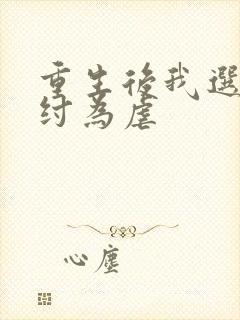 重生後我選
紂為虐
心塵